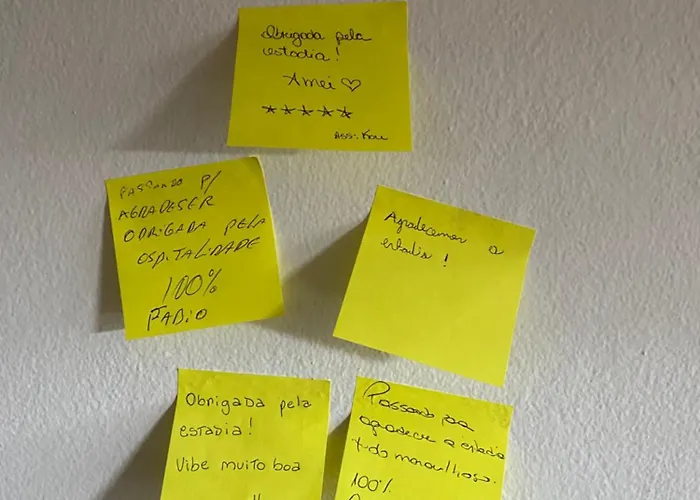 Obrigada pela
estadia!
Amei ♡
★★★★★
Ass: Kau
PASSANDO P/
AGRADESER
OBRIGADA PELA
OSPITALIDADE
100%
FABIO
Agradecemos a
estadia!
Obrigada pela
estadia!
Vibe muito boa
Passando pra
agradecer a estadia
tudo maravilhoso.
100%